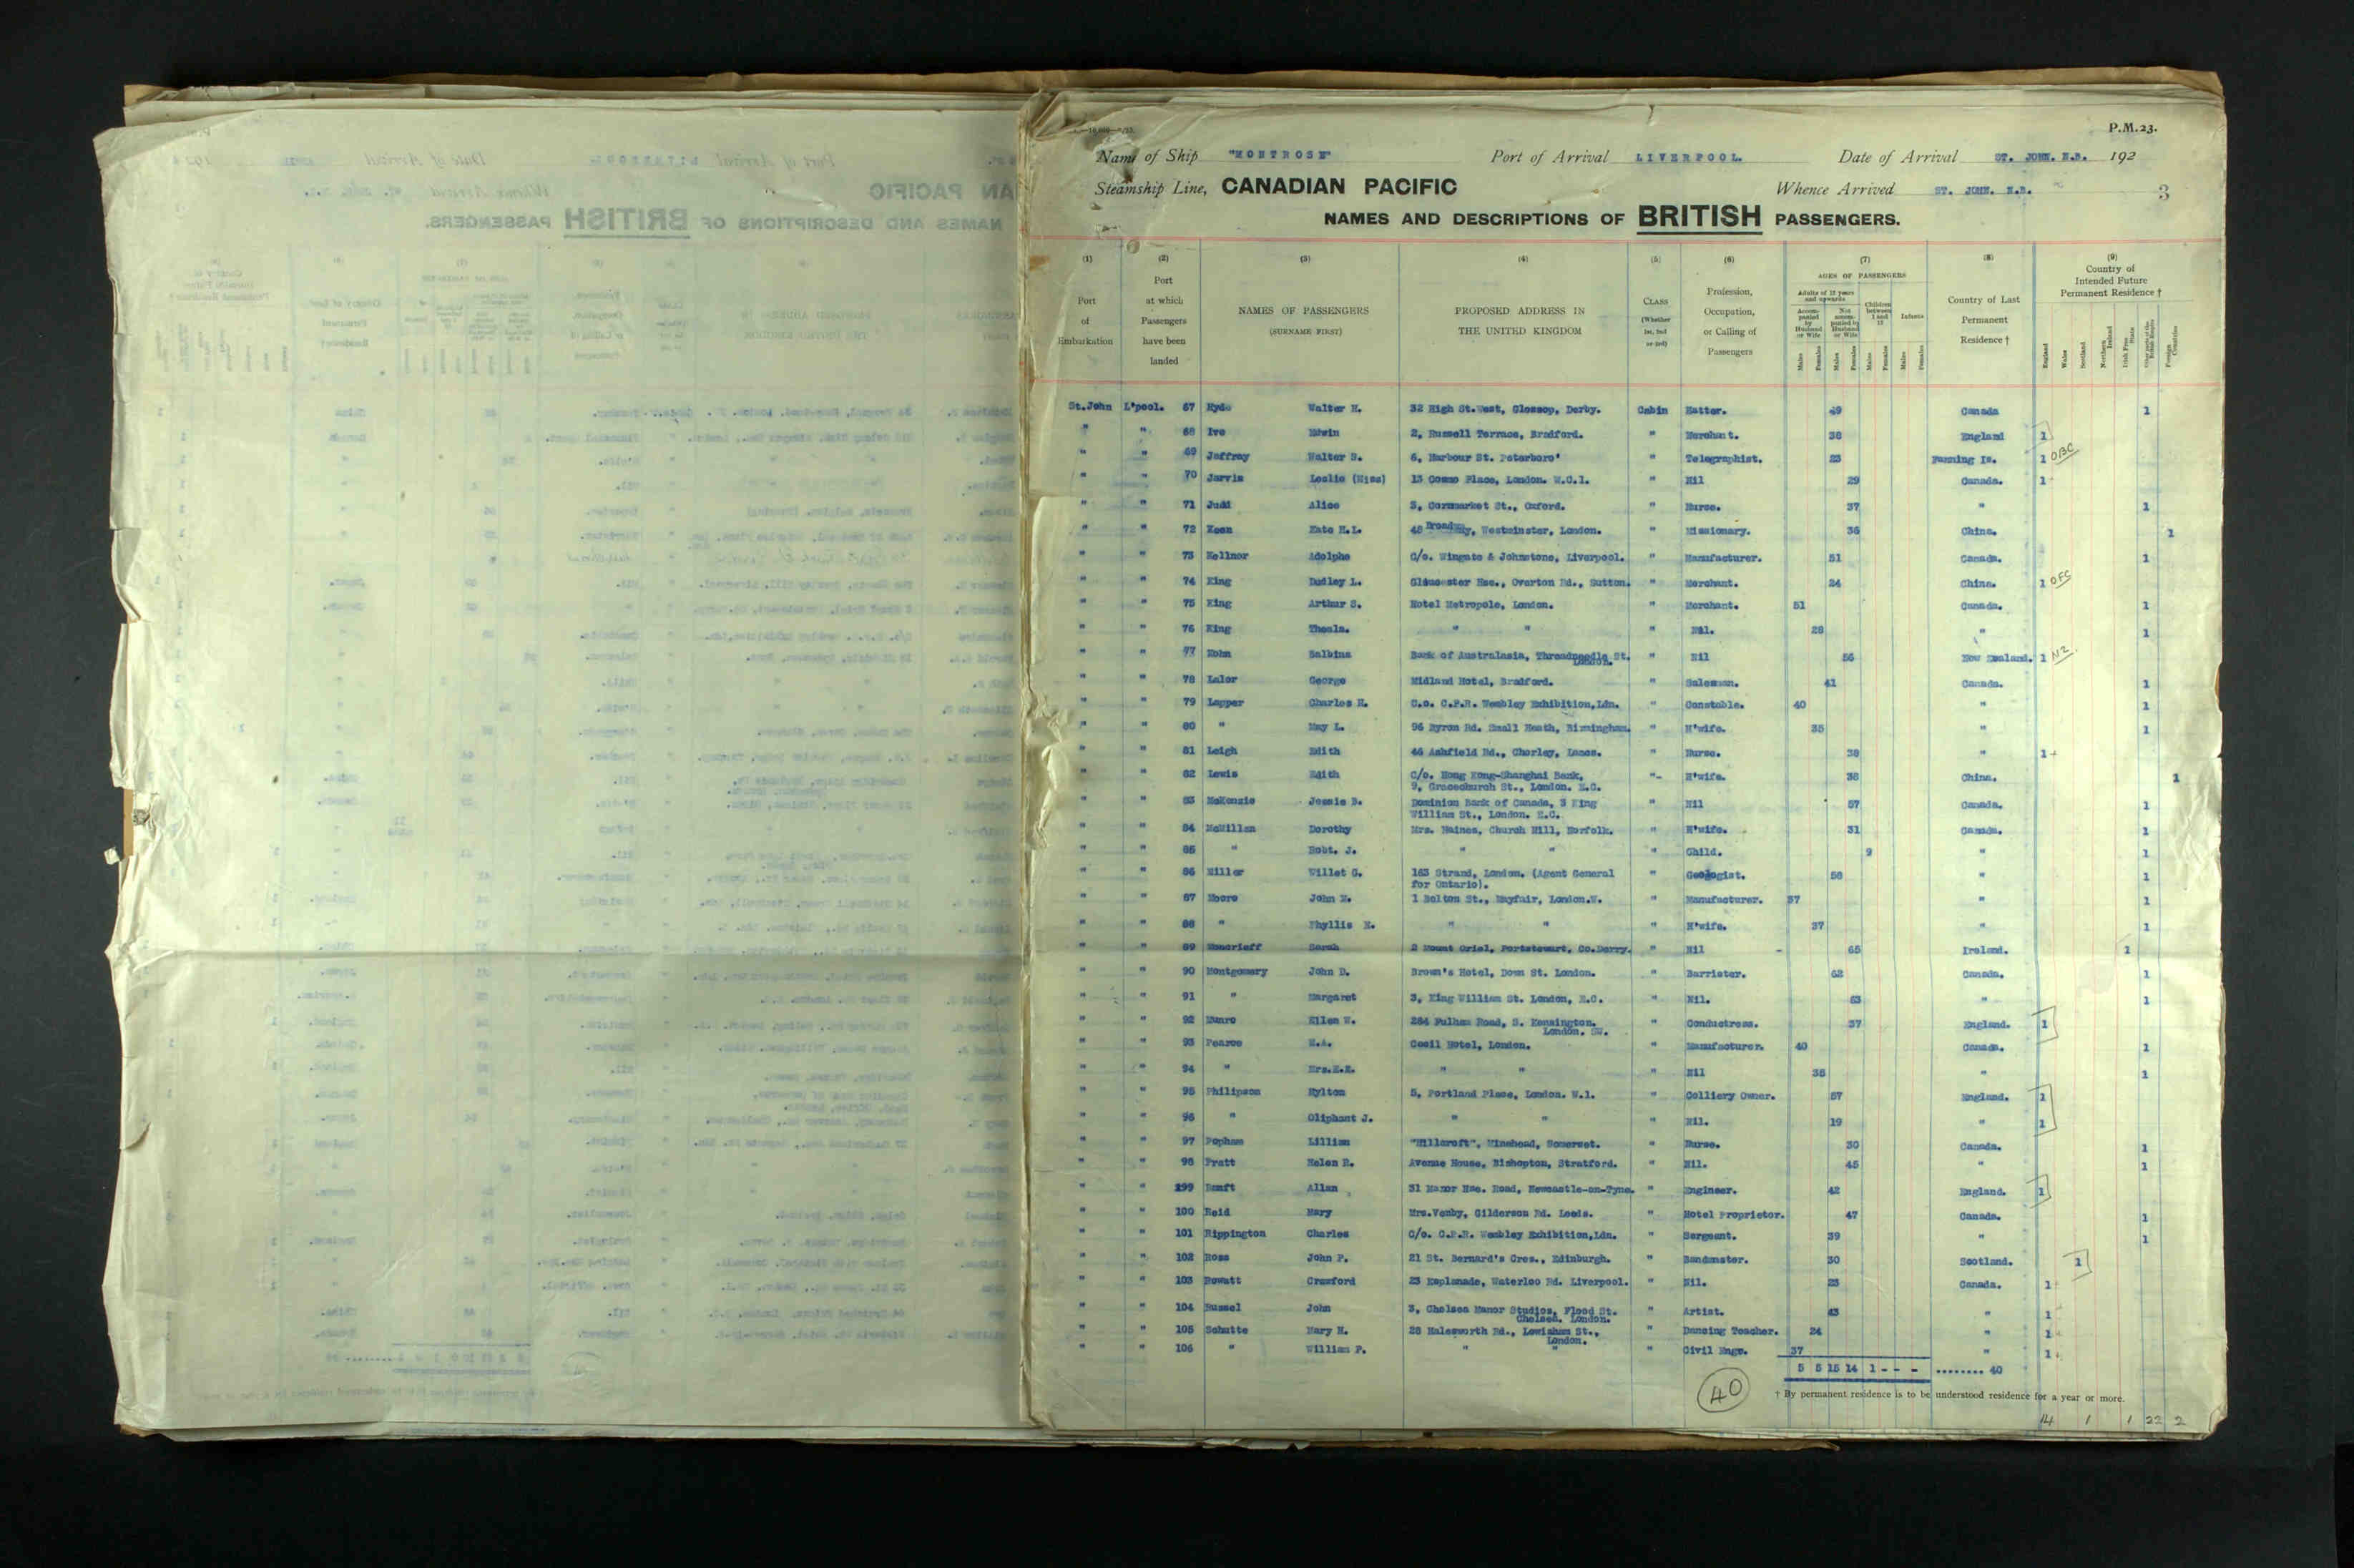 P.M.23.
Name of Ship "MONTROSE" Port of Arrival LIVERPOOL. Date of Arrival ST. JOHN. N.B. 192
Steamship Line, CANADIAN PACIFIC Whence Arrived ST. JOHN. N.B. 3
NAMES AND DESCRIPTIONS OF BRITISH PASSENGERS.
(1) (2) (3) (4) (5) (6) (7) (8) (9)
Port of Embarkation
Port at which Passengers have been landed
NAMES OF PASSENGERS (SURNAME FIRST)
PROPOSED ADDRESS IN THE UNITED KINGDOM
CLASS (Whether 1st, 2nd or 3rd)
Profession, Occupation, or Calling of Passengers
AGES OF PASSENGERS
Adults of 12 years and upwards
Accompanied by Husband or Wife
Not accompanied by Husband or Wife
Children between 1 and 12
Infants
Males Females Males Females Males Females Males Females
Country of Last Permanent Residence †
Country of Intended Future Permanent Residence †
England Wales Scotland Northern Ireland Irish Free State Other parts of the British Empire Foreign Countries
St.John L'pool. 67 Hyde Walter H. 32 High St.West, Glossop, Derby. Cabin Hatter. 49 Canada 1
" " 68 Ive Edwin 2, Russell Terrace, Bradford. " Merchant. 38 England 1
" " 69 Jeffrey Walter S. 6, Harbour St. Peterboro' " Telegraphist. 23 Fanning Is. 1 OBC
" " 70 Jarvis Leslie (Miss) 13 Cosmo Place, London. W.C.1. " Nil 29 Canada. 1
" " 71 Judd Alice 3, Cornmarket St., Oxford. " Nurse. 37 " 1
" " 72 Keen Kate H.L. 48 Broadway, Westminster, London. " Missionary. 36 China. 1
" " 73 Kellner Adolphe C/o. Wingate & Johnstone, Liverpool. " Manufacturer. 51 Canada. 1
" " 74 King Dudley L. Gloucester Hse., Overton Rd., Sutton. " Merchant. 24 China. 1 OFC
" " 75 King Arthur S. Hotel Metropole, London. " Merchant. 51 Canada. 1
" " 76 King Thesla. " " " Nil. 28 " 1
" " 77 Kohn Balbina Bank of Australasia, Threadneedle St. London. " Nil 56 New Zealand. 1 NZ.
" " 78 Lalor George Midland Hotel, Bradford. " Salesman. 41 Canada. 1
" " 79 Lapper Charles H. C.o. C.P.R. Wembley Exhibition,Ldn. " Constable. 40 " 1
" " 80 " May L. 96 Byron Rd. Small Heath, Birmingham. " H'wife. 35 " 1
" " 81 Leigh Edith 46 Ashfield Rd., Chorley, Lancs. " Nurse. 38 " 1
" " 82 Lewis Edith C/o. Hong Kong-Shanghai Bank, "- H'wife. 38 China. 1
9, Gracechurch St., London. E.C.
" " 83 McKenzie Jessie B. Dominion Bank of Canada, 3 King " Nil 57 Canada. 1
William St., London. E.C.
" " 84 McMillan Dorothy Mrs. Haines, Church Hill, Norfolk. " H'wife. 31 Canada. 1
" " 85 " Robt. J. " " " Child. 9 " 1
" " 86 Miller Willet G. 163 Strand, London. (Agent General " Geologist. 56 " 1
for Ontario).
" " 87 Moore John E. 1 Bolton St., Mayfair, London.W. " Manufacturer. 37 " 1
" " 88 " Phyllis E. " " " H'wife. 37 " 1
" " 89 Moncrieff Sarah 2 Mount Oriel, Portstewart, Co.Derry. " Nil - 65 Ireland. 1
" " 90 Montgomery John D. Brown's Hotel, Down St. London. " Barrister. 62 Canada. 1
" " 91 " Margaret 3, King William St. London, E.C. " Nil. 63 " 1
" " 92 Munro Ellen W. 264 Fulham Road, S. Kensington. " Conductress. 37 England. 1
London. SW.
" " 93 Pearce W.A. Cecil Hotel, London. " Manufacturer. 40 Canada. 1
" " 94 " Mrs.E.E. " " " Nil 36 " 1
" " 95 Philipson Hylton 5, Portland Place, London. W.1. " Colliery Owner. 57 England. 1
" " 96 " Oliphant J. " " " Nil. 19 " 1
" " 97 Popham Lillian "Hillcroft", Minehead, Somerset. " Nurse. 30 Canada. 1
" " 98 Pratt Helen R. Avenue House, Bishopton, Stratford. " Nil. 45 " 1
" " 199 Ramft Allan 31 Manor Hse. Road, Newcastle-on-Tyne. " Engineer. 42 England. 1
" " 100 Reid Mary Mrs.Venby, Gilderson Rd. Leeds. " Hotel Proprietor. 47 Canada. 1
" " 101 Rippington Charles C/o. C.P.R. Wembley Exhibition,Ldn. " Sergeant. 39 " 1
" " 102 Ross John P. 21 St. Bernard's Cres., Edinburgh. " Bandmaster. 30 Scotland. 1
" " 103 Rowatt Crawford 23 Esplanade, Waterloo Rd. Liverpool. " Nil. 23 Canada. 1
" " 104 Russel John 3, Chelsea Manor Studios, Flood St. " Artist. 43 " 1
Chelsea. London.
" " 105 Schutte Mary H. 28 Halesworth Rd., Lewisham St., " Dancing Teacher. 24 " 1
London.
" " 106 " William P. " " " Civil Engr. 37 " 1
5 5 15 14 1 - - - ........ 40
40
† By permanent residence is to be understood residence for a year or more.
14 1 1 22 2